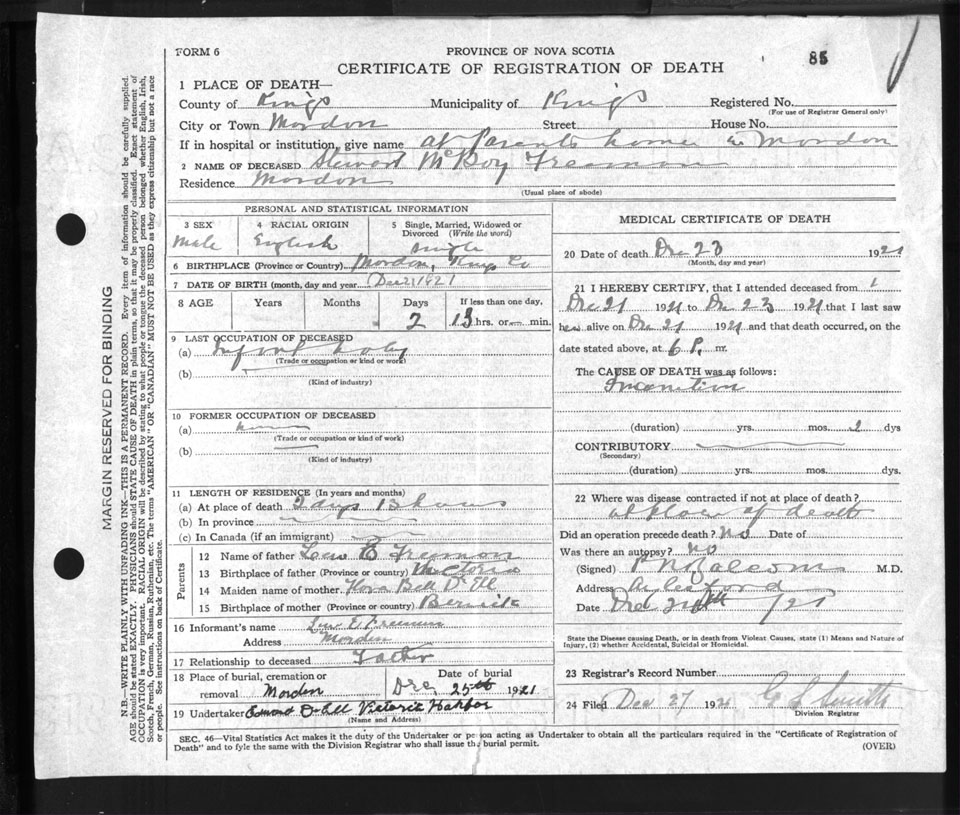 FORM 6
PROVINCE OF NOVA SCOTIA
85
CERTIFICATE OF REGISTRATION OF DEATH
1 PLACE OF DEATH—
County of Kings Municipality of Kings Registered No.
(For use of Registrar General only)
City or Town Mordon Street House No.
If in hospital or institution, give name at Parents home in Mordon
2 NAME OF DECEASED Stewart McKoy Freeman
Residence Mordon
(Usual place of abode)
PERSONAL AND STATISTICAL INFORMATION
3 SEX 4 RACIAL ORIGIN 5 Single, Married, Widowed or Divorced (Write the word)
Male English single
6 BIRTHPLACE (Province or Country) Mordon, Kings Co
7 DATE OF BIRTH (month, day and year) Dec 21/1921
8 AGE Years Months Days If less than one day,
2 13 hrs. or min.
9 LAST OCCUPATION OF DECEASED
(a) Infant baby
(Trade or occupation or kind of work)
(b)
(Kind of industry)
10 FORMER OCCUPATION OF DECEASED
(a)
(Trade or occupation or kind of work)
(b)
(Kind of industry)
11 LENGTH OF RESIDENCE (In years and months)
(a) At place of death 2 days 13 hours
(b) In province
(c) In Canada (if an immigrant)
Parents
12 Name of father Freeman
13 Birthplace of father (Province or country) Victoria
14 Maiden name of mother Bell
15 Birthplace of mother (Province or country) Berwick
16 Informant's name Freeman
Address Morden
17 Relationship to deceased Father
18 Place of burial, cremation or removal Morden
Date of burial Dec. 25th 1921
19 Undertaker Victoria Harbor
(Name and Address)
MEDICAL CERTIFICATE OF DEATH
20 Date of death Dec 23 1921
(Month, day and year)
21 I HEREBY CERTIFY, that I attended deceased from
Dec 21 1921 to Dec 23 1921 that I last saw
alive on Dec 21 1921 and that death occurred, on the
date stated above, at 6 P. m.
The CAUSE OF DEATH was as follows:
Inanition
(duration) yrs. mos. 2 dys
CONTRIBUTORY
(Secondary)
(duration) yrs. mos. dys.
22 Where was disease contracted if not at place of death?
at place of death
Did an operation precede death? No Date of
Was there an autopsy? No
(Signed) M.D.
Address Aylesford
Date Dec /21
State the Disease causing Death, or in death from Violent Causes, state (1) Means and Nature of
Injury, (2) whether Accidental, Suicidal or Homicidal.
23 Registrar's Record Number
24 Filed Dec 27 1921
Division Registrar
SEC. 46—Vital Statistics Act makes it the duty of the Undertaker or person acting as Undertaker to obtain all the particulars required in the "Certificate of Registration of
Death" and to fyle the same with the Division Registrar who shall issue the burial permit.
(OVER)
MARGIN RESERVED FOR BINDING
N.B.—WRITE PLAINLY WITH UNFADING INK—THIS IS A PERMANENT RECORD. Every item of information should be carefully supplied.
AGE should be stated EXACTLY. PHYSICIANS should STATE CAUSE OF DEATH in plain terms, so that it may be properly classified. Exact statement of
OCCUPATION is very important. RACIAL ORIGIN will be described by stating to what people or tongue the deceased person belonged whether English, Irish,
Scotch, French, German, Russian, Ruthenian, etc. The terms "AMERICAN" OR "CANADIAN" MUST NOT BE USED as they express citizenship but not a race
or people. See instructions on back of Certificate.